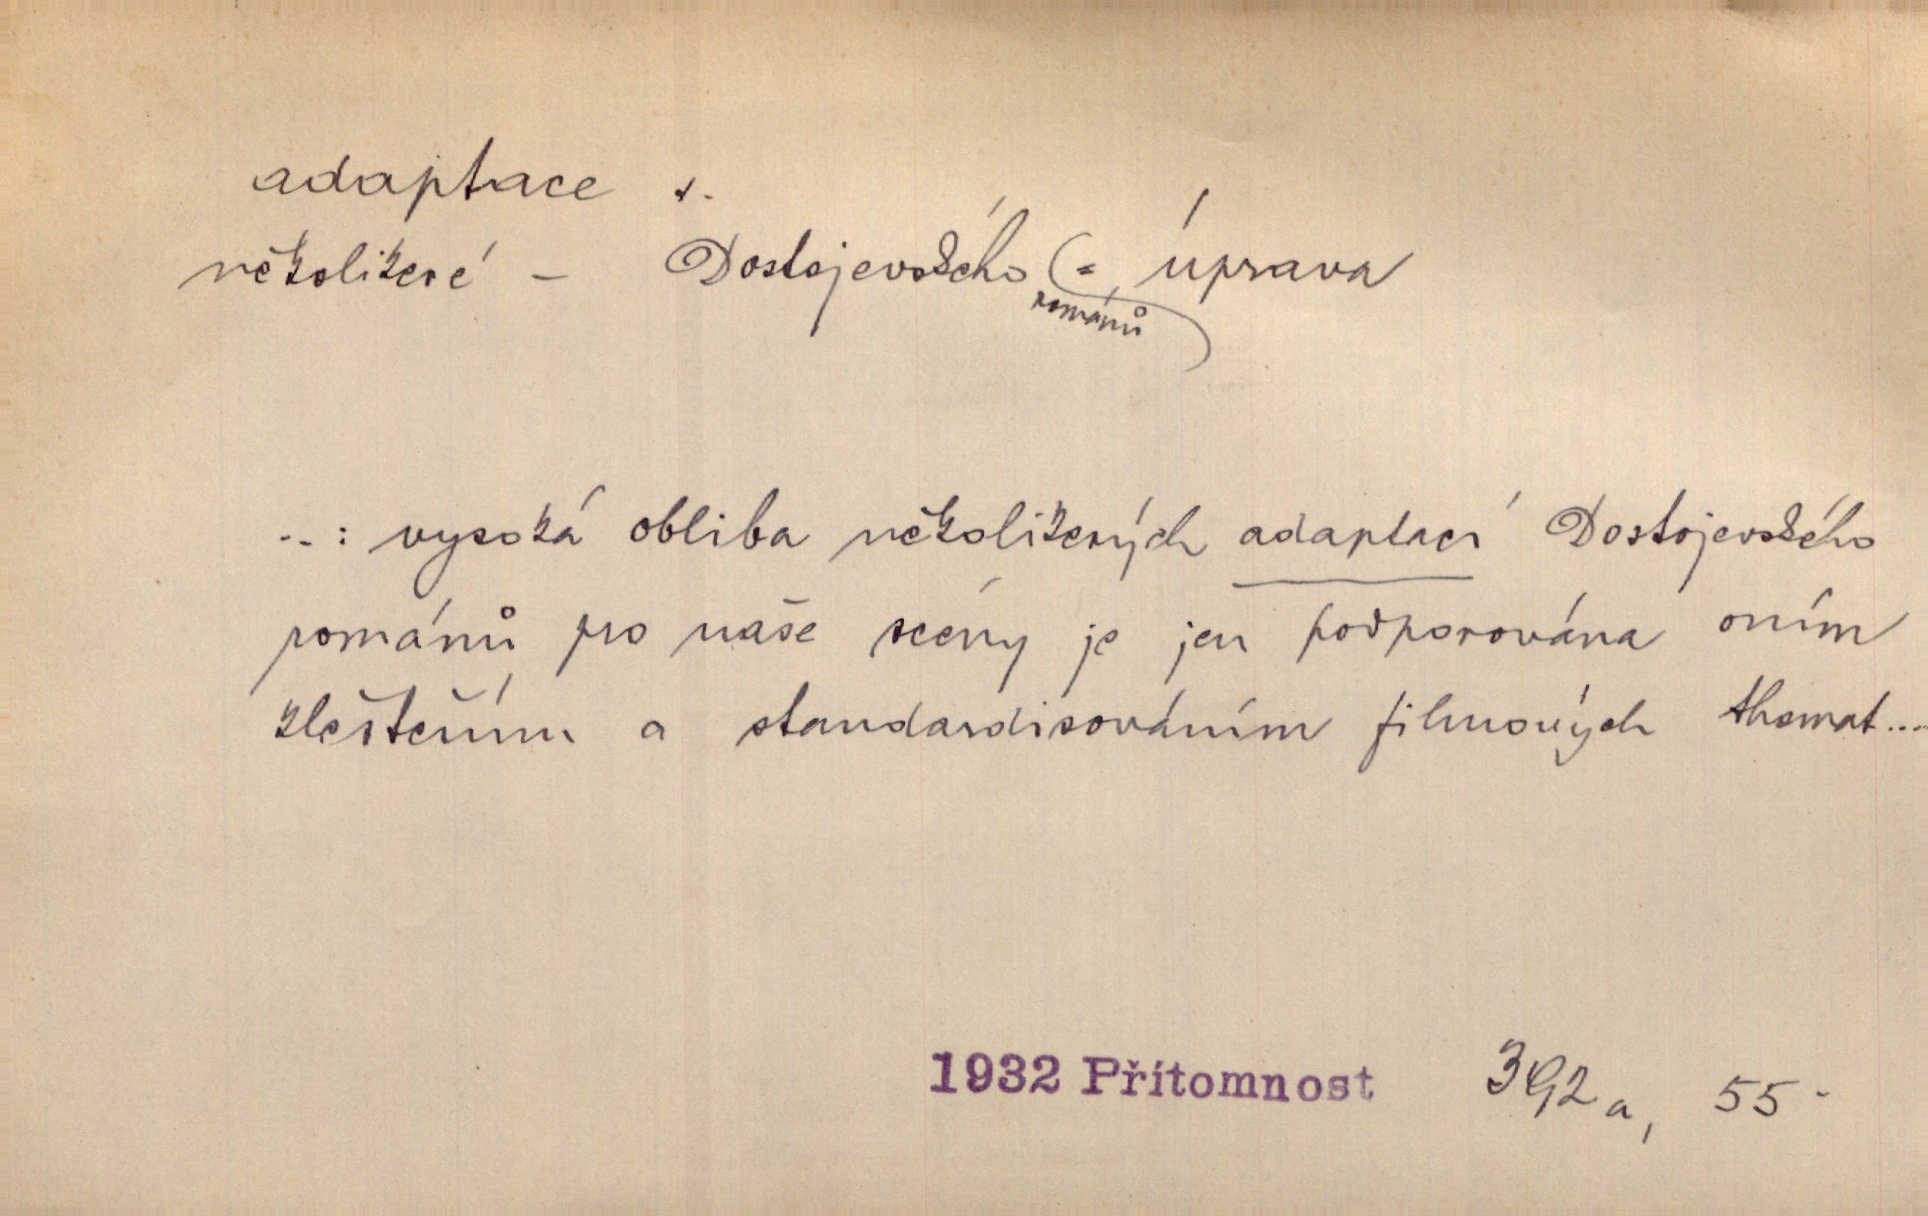 adaptace ž.
několikeré – Dostojevského (= úprava
románů
..: vysoká obliba několikerých adaptací Dostojevského
románů pro naše scény je jen podporována oním
kleštěním a standardisováním filmových themat...
1932 Přítomnost 392a, 55